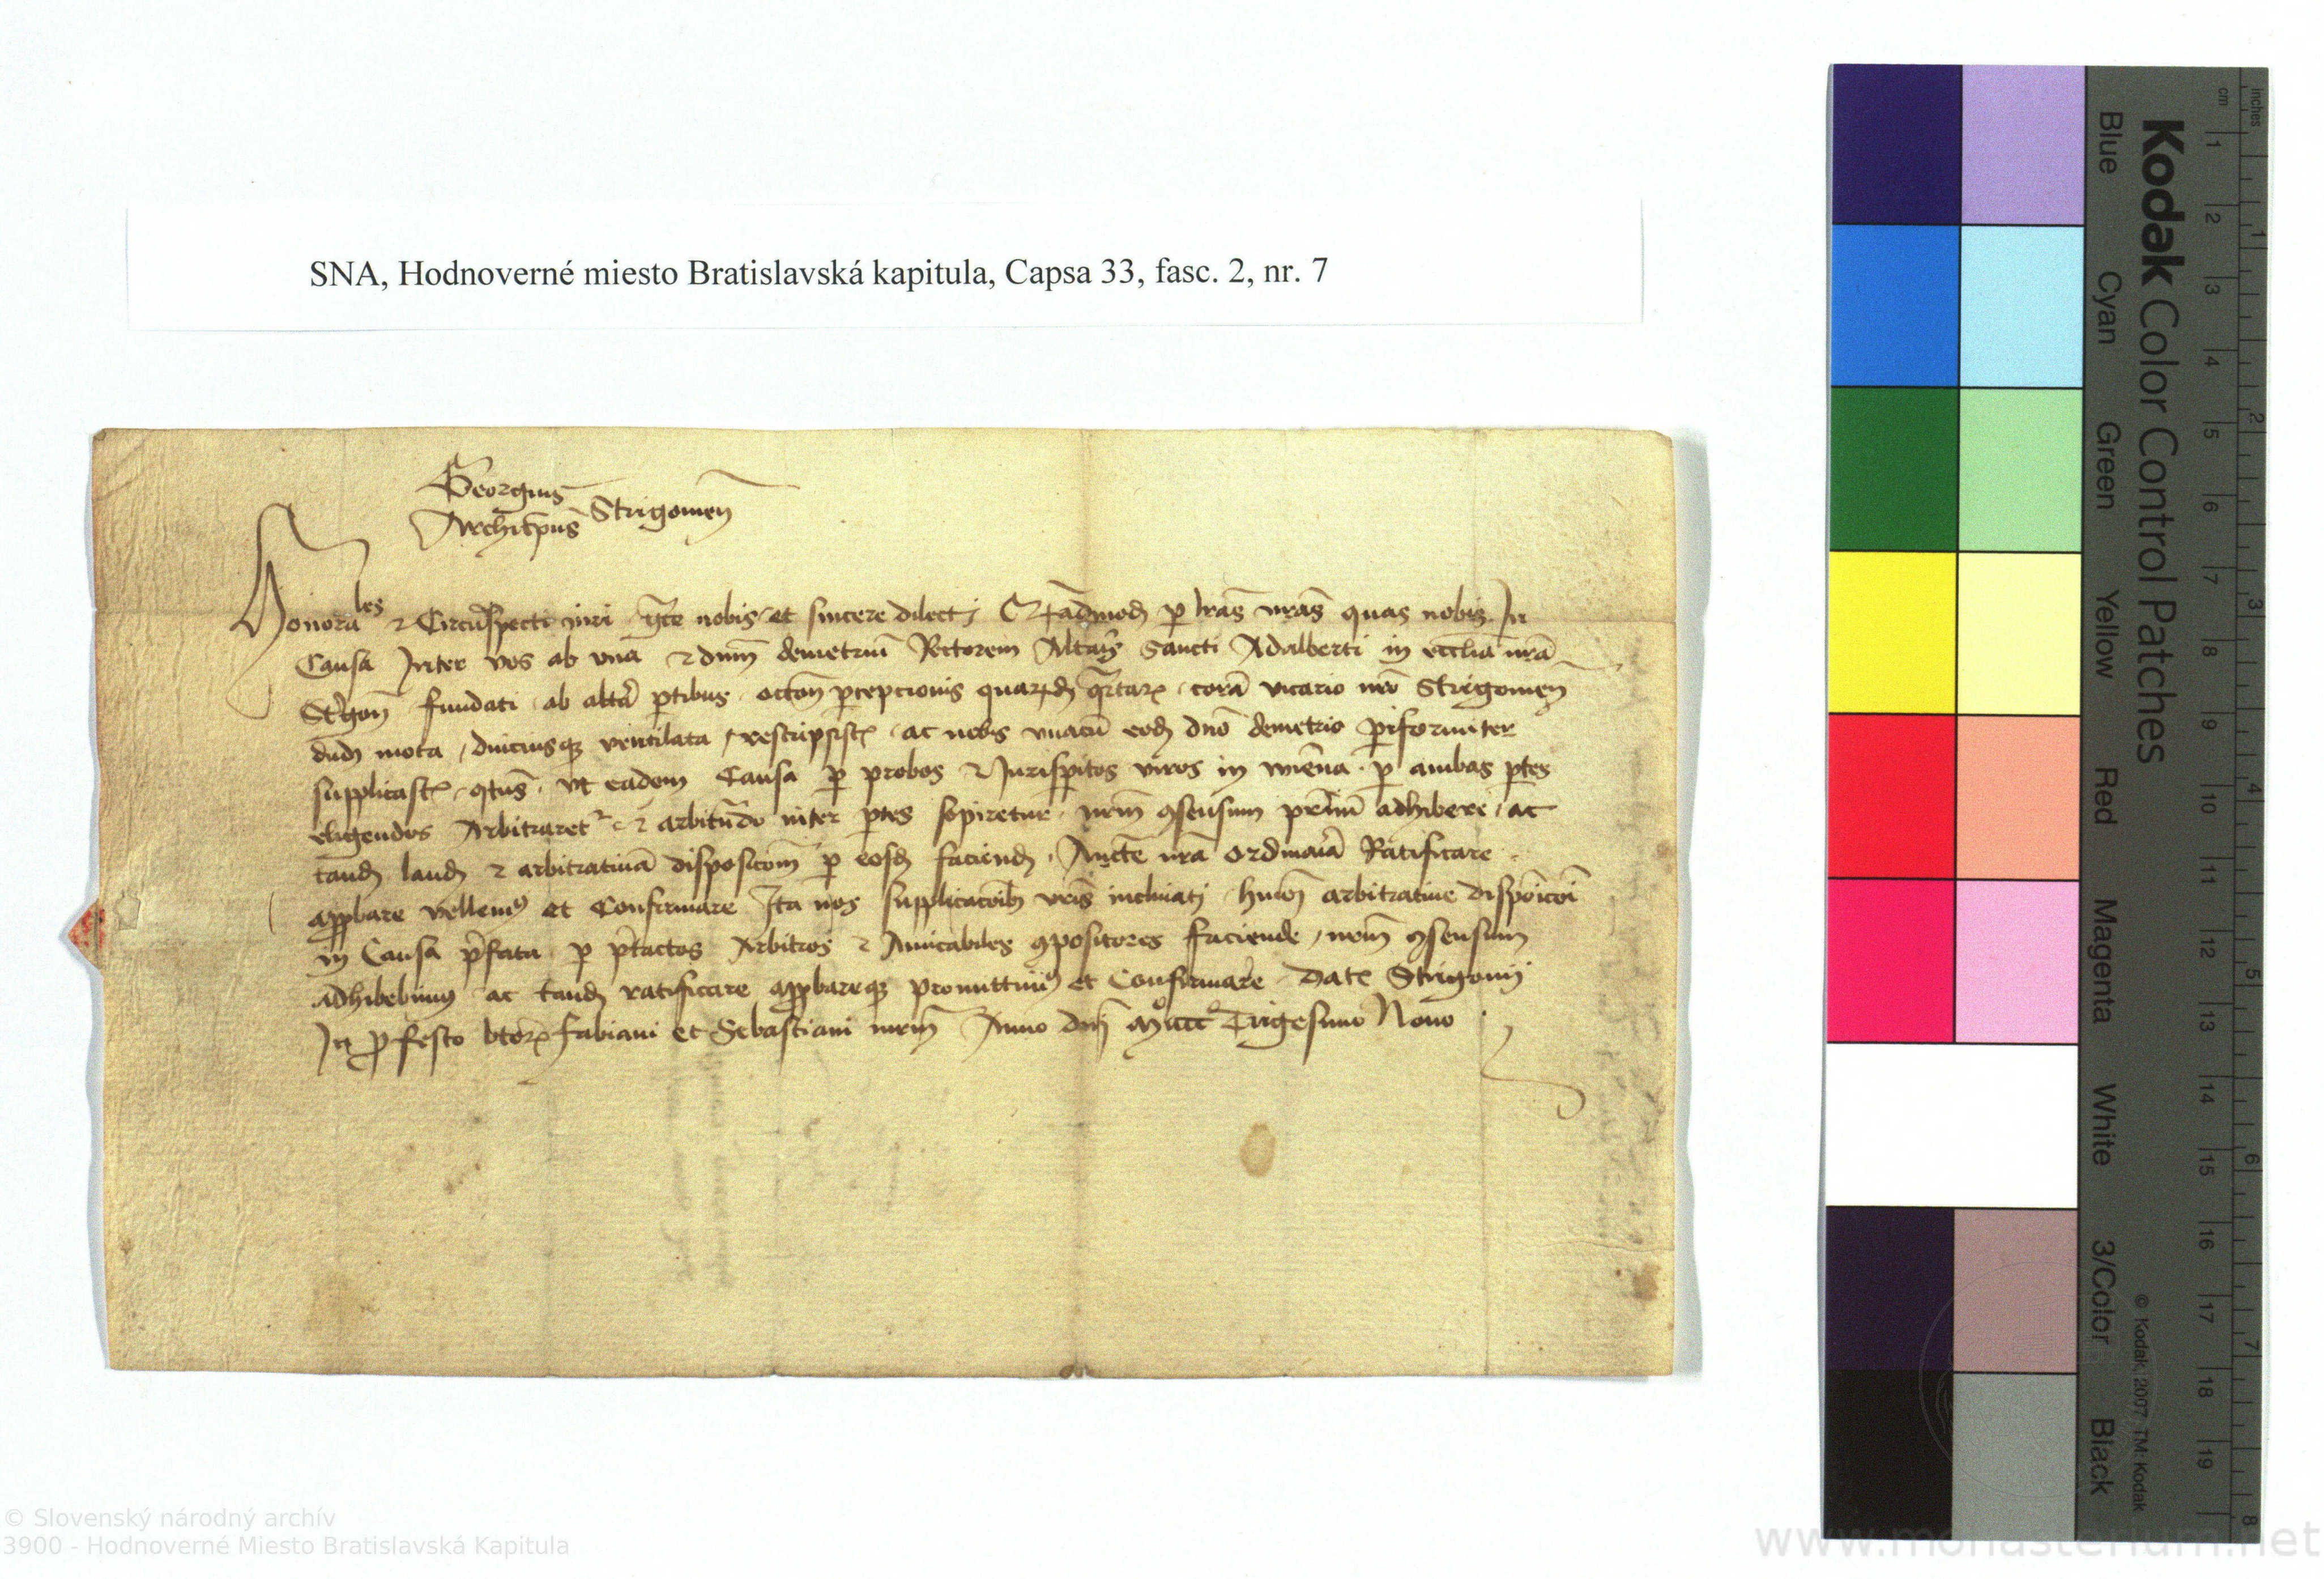 SNA, Hodnoverné miesto Bratislavská kapitula, Capsa 33, fasc. 2, nr. 7
Georgius
Archiep̄us Strigonien̄
Honorales et Circūspecti viri gr̄te nobis et sincere dilecti Qēadmod p lr̄as vr̄as quas nobis In
Causa Inter vos ab vna et dnm̄ demetriū Rectorem Altaris Sancti Adalberti in eccl̄ia nr̄a
Strigon̄ fundati ab altā ptibus occōn pcepcionis quarūd qr̄tarꝝ corā vicario nr̄o Strigonien̄
dud mota diuciusqꝫ ventilata rescripsistꝭ ac nobis vnacū eod dn̄o demetrio priformiter
supplicastꝭ qtus vt eadem Causa p probos et Jurispitos viros in wiēna p ambas ptes
eligendos Arbitraret et arbitrādo inter ptes sopiretur nr̄m ꝯsensum prīmū adhibere ac
tand laud et arbitratiuā disposicōm p eosd faciend Aucte nr̄a ordinaria Ratificare
appbare vellemꝰ et Confirmare Ita nos supplicacōib vr̄is inclinati hmōi arbitratiue dispōicōi
in Causa pfata p ptactos Arbitros et Amicabiles ꝯpositores faciende nr̄m ꝯsensum
adhibebimꝰ ac tand ratificare appbareqꝫ promittimꝰ et Confirmare Datꝭ Strigonij
In pfesto btorꝝ Fabiani et Sebastiani mrm̄ Anno dn̄i Mᵒccccᵒ Trigesimo Nono
Kodak Color Control Patches
Blue Cyan Green Yellow Red Magenta White 3/Color Black
© Kodak, 2007 TM: Kodak
cm 1 2 3 4 5 6 7 8 9 10 11 12 13 14 15 16 17 18 19
inches 1 2 3 4 5 6 7 8
© Slovenský národný archív
3900 - Hodnoverné Miesto Bratislavská Kapitula
www.monasterium.net